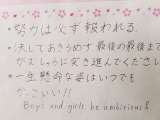 ・努力は必ず報われる
・決してあきらめず最後の最後まで
がむしゃらに突き進んでください
・一生懸命な姿はいつでも
かっこいい!!
Boys and girls, be ambitious!